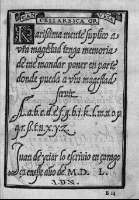 CELLARESCA GR.
Rarissima mente suplico a
v̄ra magestad tenga memoria
de me mandar poner en parte
donde pueda a v̄ra magestad
servir.
.a.b.c.d.e.f.g.h.i.k.l.m.n.o.p
q.r.s.t.u.x.y.z.
Iuan de yciar lo escrivio en çarago
ça eneste año de M.D.L.
I.D.V.